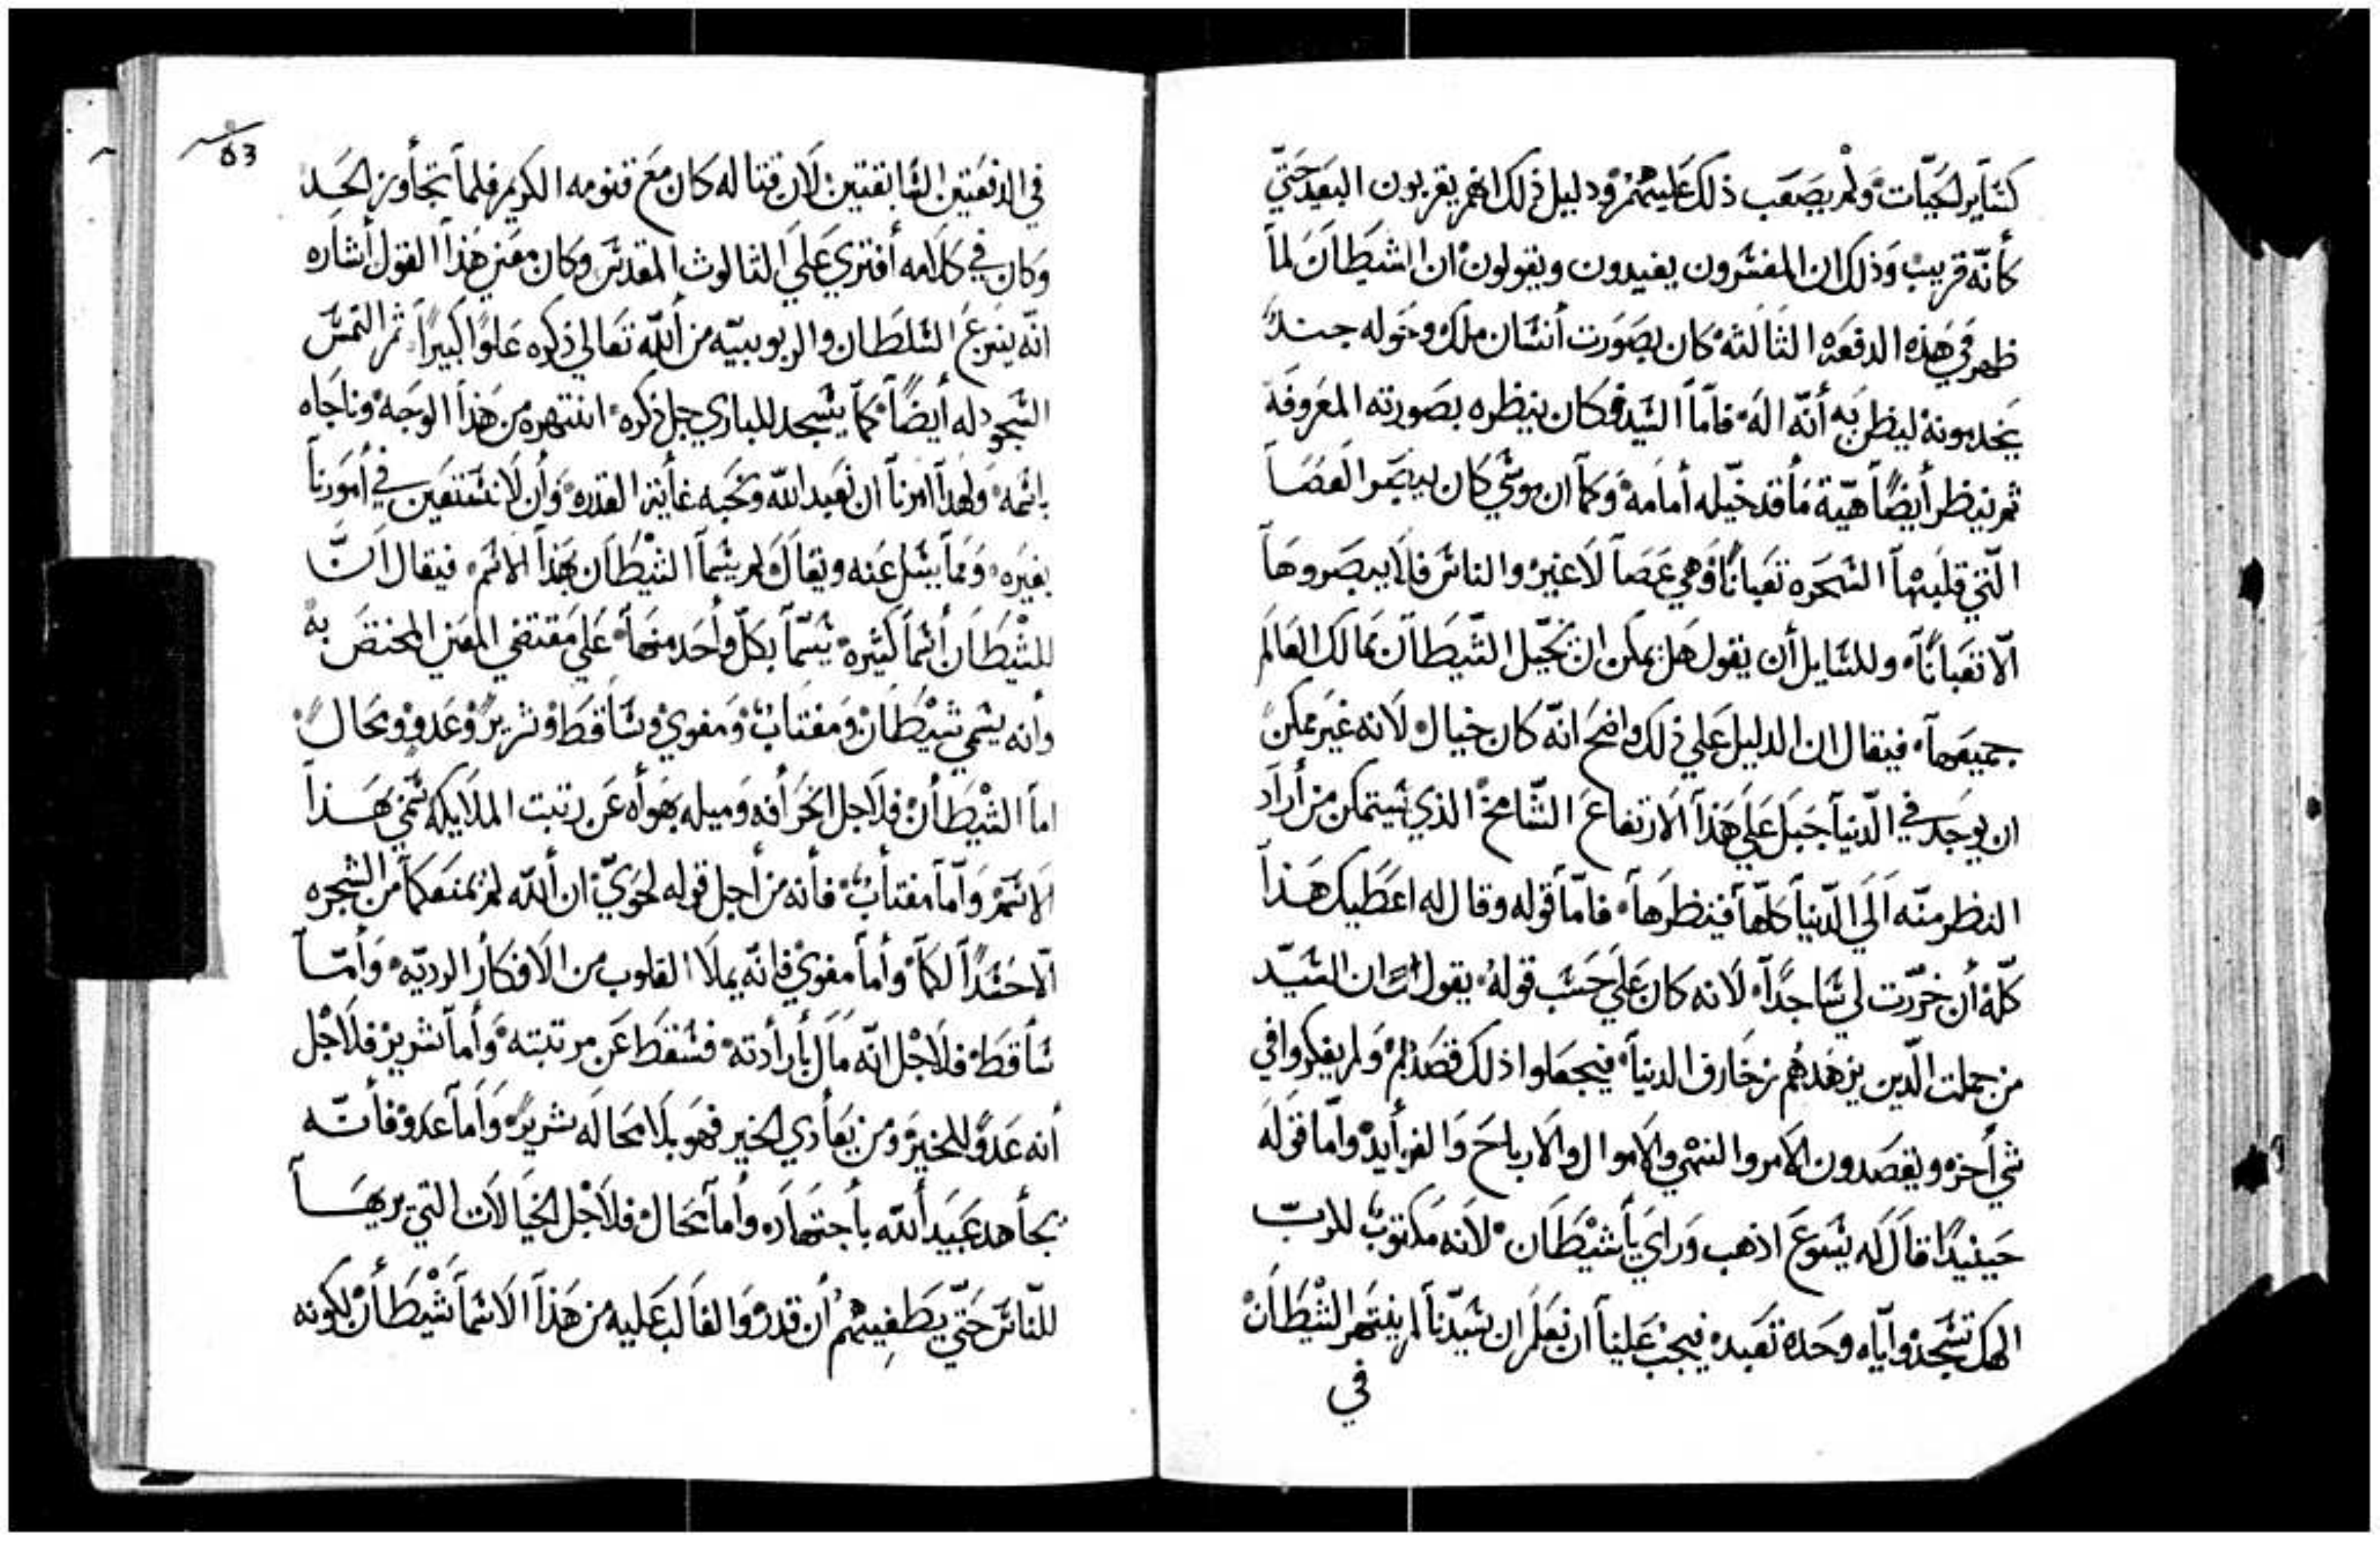 كسَاير الحَيّات وَلم يصَعَب ذلك عَليهُم ودليل ذلك انهم يقربون البعَيد حَتّي
كأنّه قريب وَذلك ان المفسَرون يفيدون ويقولون ان الشيَطاَن لماَ
ظهر في هَذه الدفعَه الثاَلثه كان بصَورت أنسَان ملك وحَوله جندً
يخَدمونه ليظن به أنّه الهَ فاَمّاَ السَيد فكان ينظره بصَورته المعَروفَة
ثم ينظر أيضَاً هيّة مَاَ قد خيّله أماَمه وَكمَاَ ان موسَي كان يبصَر العَصَاَ
الّتي قلبهاَ السَحَره ثعَبانًا وَهي عَصَاَ لاَ غير والناسَ فلاَ يبصَروهَاَ
الّا ثعَبانًاَ وللسَايل أن يقول هَل يمكن ان يخَيّل الشّيَطاَن ممَالك العَالَم
جميعَهاَ فيقال ان الدليل عَلي ذلك واضَح انّه كان خيال لاَنه غيَر ممكن
ان يوجَد في الّدنياَ جَبَل عَلَي هَذاَ الاَرتفاعَ الشّامخَ الذي يَستمكن من أراَد
النظر منّه اَلَي الّدنياَ كلهّاَ فينظرَهاَ فامّاَ قوله وقال له اعَطيك هَذاَ
كلّهُ أن خَرّرت لي سَاجداً لاَنه كان عَلَي حَسَب قوله يقول ان السَيّد
من جملت الّدين يزهَدهُم زخَارف الدنياَ فيجعَلوا ذلك قصَدهم وَلم يفكروا في
شي أخره ويقصَدون الاَمر والنهَي والاَموال والاَرباحَ وَالفرأيد وأمّا قولَه
حَينيدًا قالَ لَه يسَوعَ اذهب وَراي يأَشيْطَاَن لاَنه مَكتوبٌ للربّ
الهك تسَجَد وايّاه وحَده تعَبد فيجبَ عَليناَ ان نعَلَم ان سَيّدناَ لم ينتهَر الشيْطَاَن
في
63
في الدفعَتين السَّابقتين لاَن قتاله كان معَ قنومه الكريم فلماَ تجاَوز الحَد
وَكان في كلاَمه أفتري عَلَي الثالوث المقدسَ وَكان معَني هَذاَ القول أشاَره
انّه ينزعَ السَلطَان والربوبيّه من أللّه تعَالي ذكره عَلوًا كبيراً ثم التمسَ
السَجود له أيضَاً كمَاَ يسَجد للباري جل ذكره انتهره من هَذاَ الوجَه وناجَاه
باسَمه وَلهَذاَ امرناَ ان نعَبد اللّه ونحَبه غأَيتَ القدره وأن لاَ نسَتعَين في أمَورناَ
بغيَره وَممَاَ يسَل عَنه ويقاَل لم يسَماَ الشيْطَاَن بهَذاَ الاَسَم فيقال انّ
للشْيطَاَن أسَماَ كثيره يسَمّاَ بكلّ وأحَد منهَاَ عَلَي مَقتضَي المعَني المختصَ به
وأنه يسَمي شيْطَان وَمفتاب وَمفوي وسَاَقطَ وشرير وعَدو ومحَالً
اماَ الشيْطَأن فلاَجل انحَرأفه وَميله بهَوأه عَن رتبت الملاَيكه سَمّي بهَذاَ
الاَسَم وَأمّاَ مفتاَب فأنه من أجل قوله لحَوّي ان أللّه لم يمنعَكمَاَ من الشجره
الّا حَسَداً لكمَاَ وأماَ مفوي فانّه يملاَ القلوب من الاَفكاَر الرديّه وَأمّاَ
سَاقطَ فلاَجْل انّه مَاَل بأرأدته فسَقطَ عَن مرتبته وَأماَ شرير فلاَجْل
أنه عَدوً للخير وَمن يعَأَدي الخير فهَو بلاَ محَالَه شرير وَأمَاَ عَدو فأنّه
يجَأهد عَبَيد أللّه بأجتهَاَده وأماَ محَال فلاَجْل الخيَالاَت التي يريهَاَ
للنّاسَ حَتّي يطَغيهُم أن قدر وَالغاَلب عَليه من هَذاَ الاَسَماَ شْيطَأن لكونه